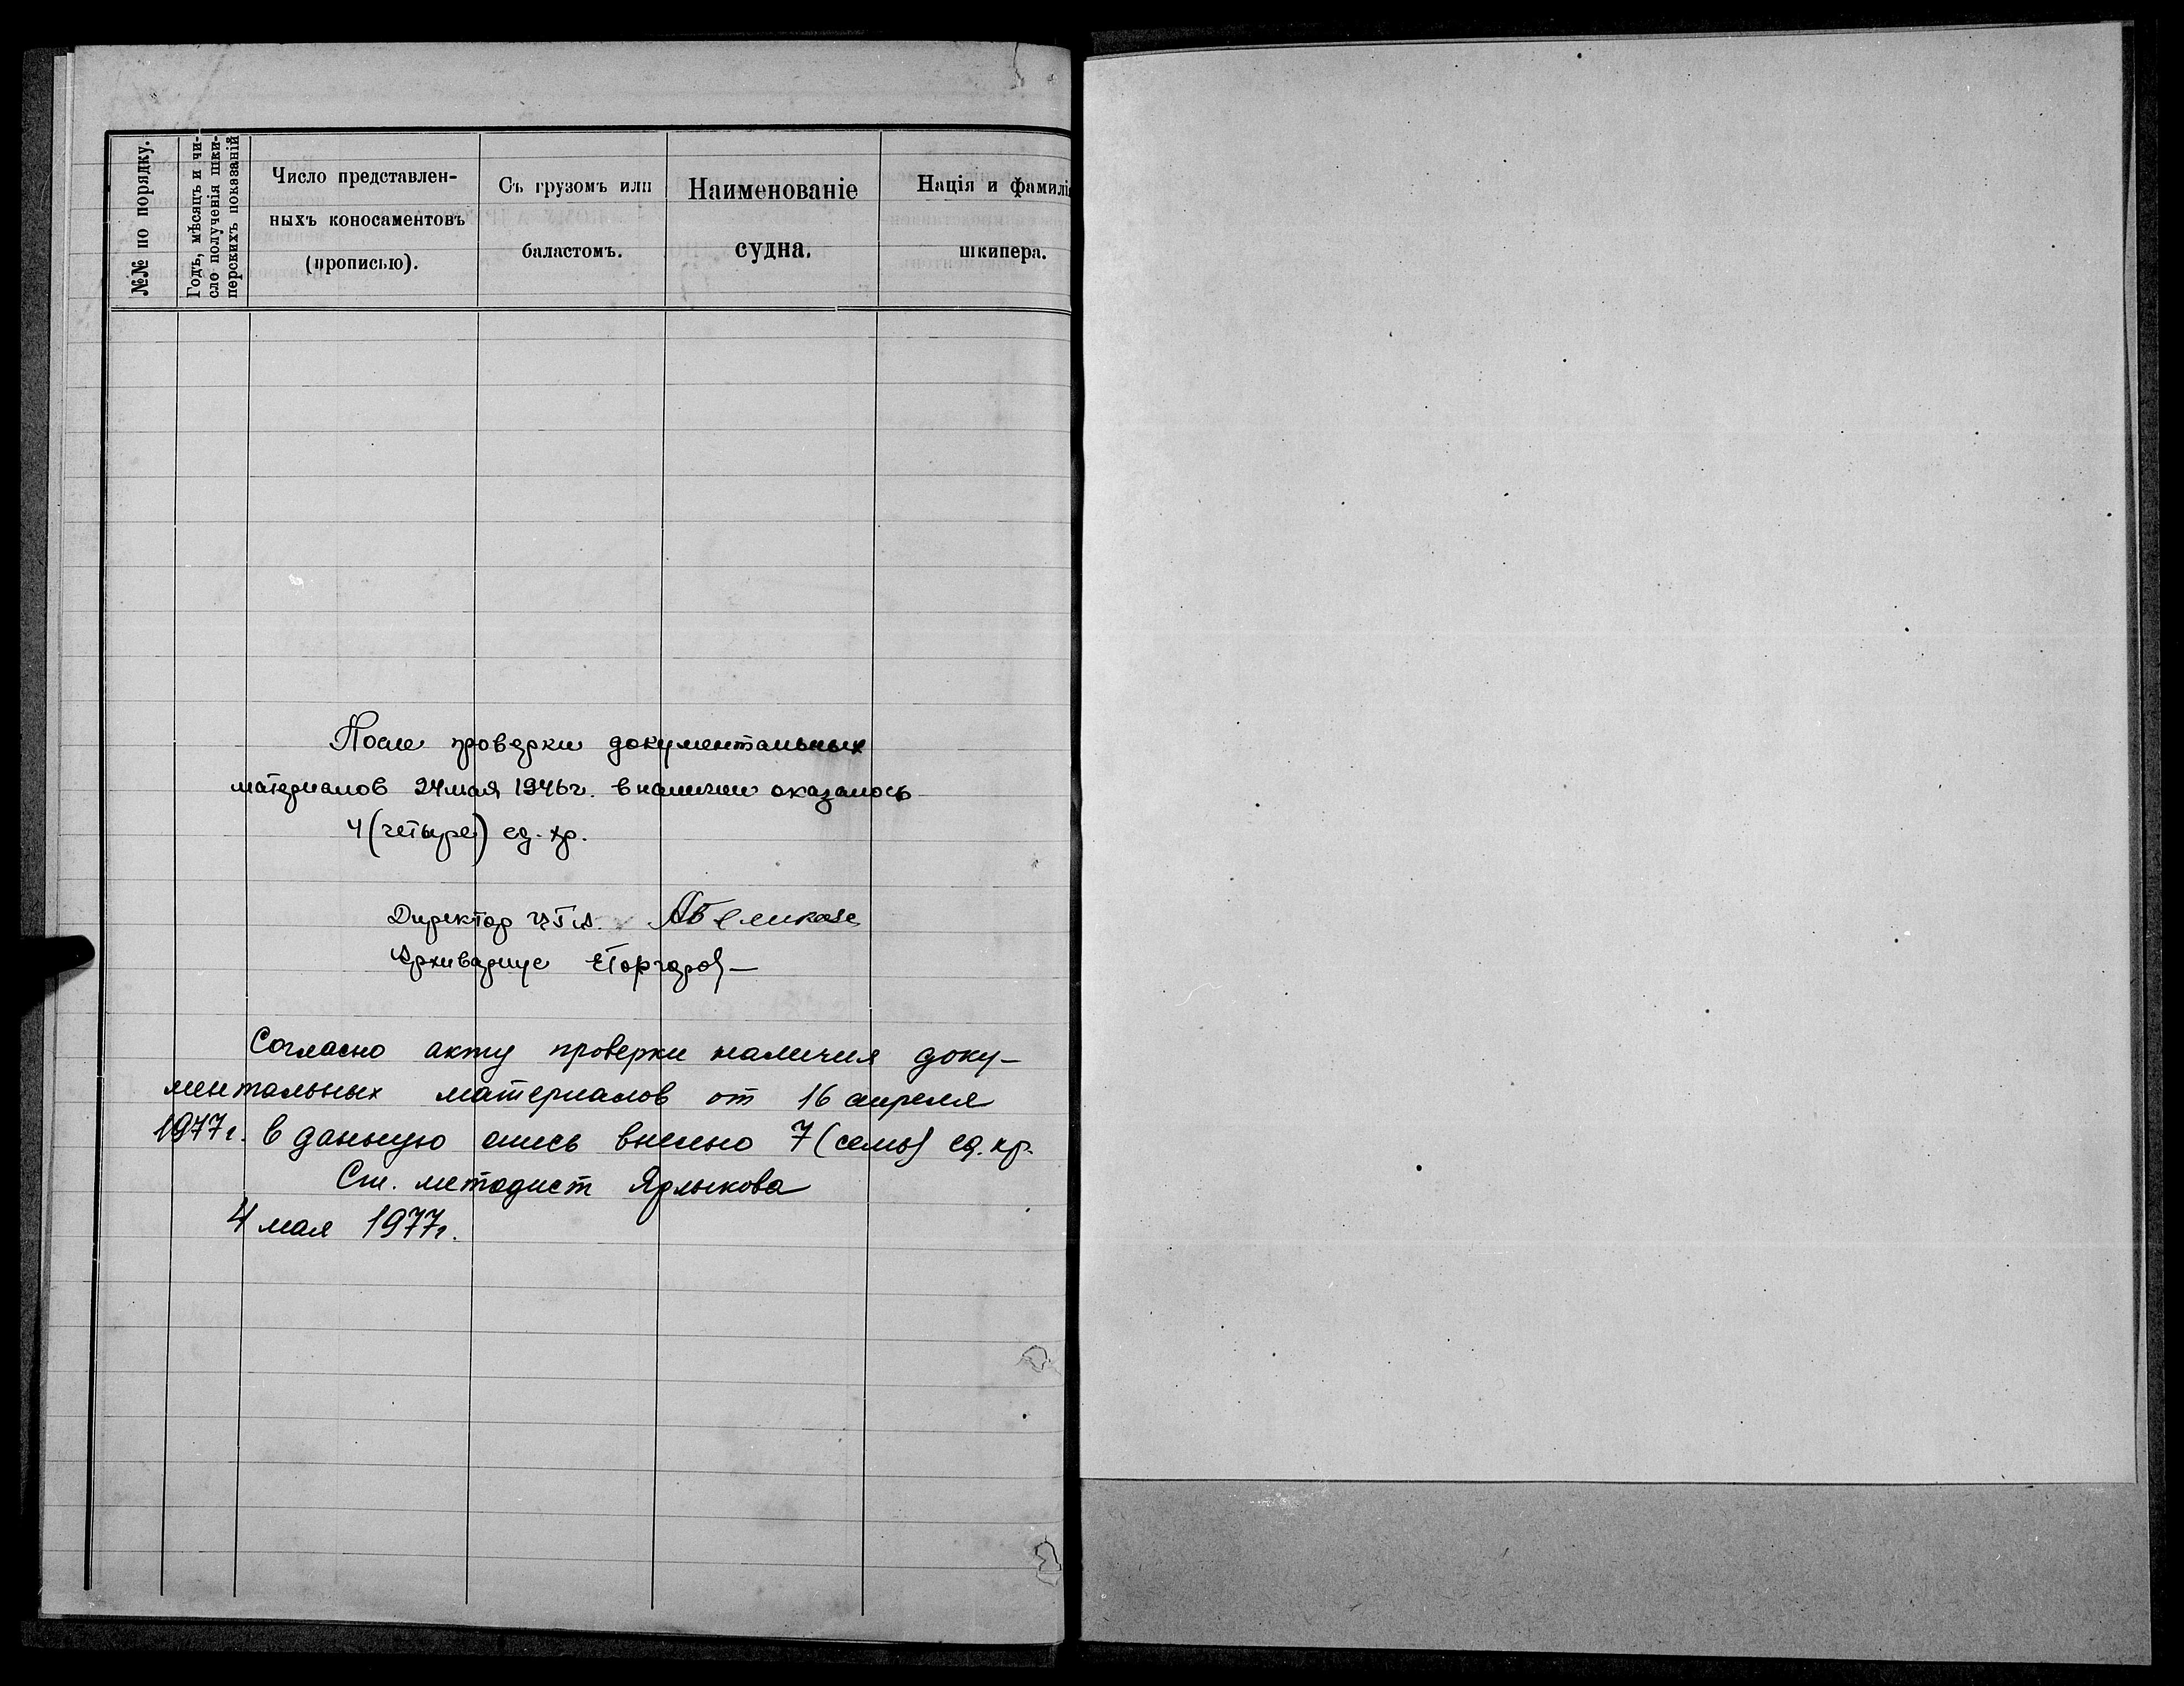 №№ по порядку.
Годъ, мѣсяцъ и чи-
сло полученія шки-
перскихъ показаній
Число представлен-
ныхъ коносаментовъ
(прописью).
Съ грузомъ или
баластомъ.
Наименованіе
судна.
Нація и фамилі
шкипера.
После проверки документальных
материалов 24 мая 1946 г. в наличии оказалось
4 (четыре) ед. хр.
Директор
Архивариус
Согласно акту проверки наличия доку-
ментальных материалов от 16 апреля
1977 г. в данную опись внесено 7 (семь) ед. хр.
Ст. методист Ярлыкова
4 мая 1977 г.